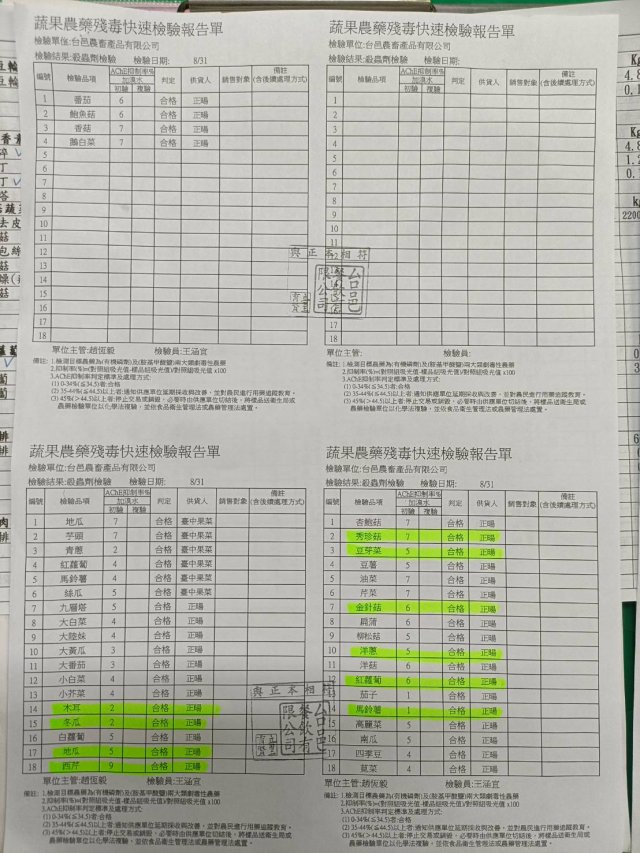 蔬果農藥殘毒快速檢驗報告單
檢驗單位:台邑農畜產品有限公司
檢驗結果:殺蟲劑檢驗 檢驗日期: 8/31
編號 檢驗品項 AChE抑制率% 加溴水 初驗 複驗 判定 供貨人 銷售對象 備註(含後續處理方式)
1 番茄 6 合格 正暘
2 鮑魚菇 6 合格 正暘
3 香菇 7 合格 正暘
4 鵝白菜 7 合格 正暘
5
6
7
8
9
10
11
12
13
14
15
16
17
18
單位主管:趙恆毅 檢驗員:王涵宜
備註: 1.檢測目標農藥為(有機磷劑)及(胺基甲酸鹽)兩大類劇毒性農藥
2.抑制率(%)=(對照組吸光值-樣品組吸光值)/對照組吸光值 x100
3.AChE抑制率判定標準及處理方式:
(1) 0-34%(≦34.5)者:合格
(2) 35-44%(≦44.5)以上者:通知供應單位延期採收與改善,並對農民進行用藥追蹤教育。
(3) 45%(>44.5)以上者:停止交易或銷毀,必要時由供應單位切結後,將樣品送衛生局或
農藥檢驗單位以化學法複驗,並依食品衛生管理法或農藥管理法處置。
蔬果農藥殘毒快速檢驗報告單
檢驗單位:台邑農畜產品有限公司
檢驗結果:殺蟲劑檢驗 檢驗日期:
編號 檢驗品項 AChE抑制率% 加溴水 初驗 複驗 判定 供貨人 銷售對象 備註(含後續處理方式)
1
2
3
4
5
6
7
8
9
10
11
12
13
14
15
16
17
18
與正本相符
單位主管: 檢驗員:
備註: 1.檢測目標農藥為(有機磷劑)及(胺基甲酸鹽)兩大類劇毒性農藥
2.抑制率(%)=(對照組吸光值-樣品組吸光值)/對照組吸光值 x100
3.AChE抑制率判定標準及處理方式:
(1) 0-34%(≦34.5)者:合格
(2) 35-44%(≦44.5)以上者:通知供應單位延期採收與改善,並對農民進行用藥追蹤教育。
(3) 45%(>44.5)以上者:停止交易或銷毀,必要時由供應單位切結後,將樣品送衛生局或
農藥檢驗單位以化學法複驗,並依食品衛生管理法或農藥管理法處置。
蔬果農藥殘毒快速檢驗報告單
檢驗單位:台邑農畜產品有限公司
檢驗結果:殺蟲劑檢驗 檢驗日期: 8/31
編號 檢驗品項 AChE抑制率% 加溴水 初驗 複驗 判定 供貨人 銷售對象 備註(含後續處理方式)
1 地瓜 7 合格 臺中果菜
2 芋頭 7 合格 臺中果菜
3 青蔥 2 合格 臺中果菜
4 紅蘿蔔 4 合格 臺中果菜
5 馬鈴薯 4 合格 臺中果菜
6 絲瓜 5 合格 臺中果菜
7 九層塔 5 合格 正暘
8 大白菜 4 合格 正暘
9 大陸妹 4 合格 正暘
10 大黃瓜 3 合格 正暘
11 大番茄 3 合格 正暘
12 小白菜 4 合格 正暘
13 小芥菜 4 合格 正暘
14 木耳 2 合格 正暘
15 冬瓜 2 合格 正暘
16 白蘿蔔 5 合格 正暘
17 地瓜 5 合格 正暘
18 西芹 9 合格 正暘
與正本相符
單位主管:趙恆毅 檢驗員:王涵宜
備註: 1.檢測目標農藥為(有機磷劑)及(胺基甲酸鹽)兩大類劇毒性農藥
2.抑制率(%)=(對照組吸光值-樣品組吸光值)/對照組吸光值 x100
3.AChE抑制率判定標準及處理方式:
(1) 0-34%(≦34.5)者:合格
(2) 35-44%(≦44.5)以上者:通知供應單位延期採收與改善,並對農民進行用藥追蹤教育。
(3) 45%(>44.5)以上者:停止交易或銷毀,必要時由供應單位切結後,將樣品送衛生局或
農藥檢驗單位以化學法複驗,並依食品衛生管理法或農藥管理法處置。
蔬果農藥殘毒快速檢驗報告單
檢驗單位:台邑農畜產品有限公司
檢驗結果:殺蟲劑檢驗 檢驗日期: 8/31
編號 檢驗品項 AChE抑制率% 加溴水 初驗 複驗 判定 供貨人 銷售對象 備註(含後續處理方式)
1 杏鮑菇 7 合格 正暘
2 秀珍菇 7 合格 正暘
3 豆芽菜 5 合格 正暘
4 豆薯 5 合格 正暘
5 油菜 7 合格 正暘
6 芹菜 7 合格 正暘
7 金針菇 6 合格 正暘
8 扁蒲 6 合格 正暘
9 柳松菇 5 合格 正暘
10 洋蔥 5 合格 正暘
11 洋菇 6 合格 正暘
12 紅蘿蔔 6 合格 正暘
13 茄子 1 合格 正暘
14 馬鈴薯 1 合格 正暘
15 高麗菜 5 合格 正暘
16 南瓜 5 合格 正暘
17 四季豆 4 合格 正暘
18 莧菜 4 合格 正暘
單位主管:趙恆毅 檢驗員:王涵宜
備註: 1.檢測目標農藥為(有機磷劑)及(胺基甲酸鹽)兩大類劇毒性農藥
2.抑制率(%)=(對照組吸光值-樣品組吸光值)/對照組吸光值 x100
3.AChE抑制率判定標準及處理方式:
(1) 0-34%(≦34.5)者:合格
(2) 35-44%(≦44.5)以上者:通知供應單位延期採收與改善,並對農民進行用藥追蹤教育。
(3) 45%(>44.5)以上者:停止交易或銷毀,必要時由供應單位切結後,將樣品送衛生局或
農藥檢驗單位以化學法複驗,並依食品衛生管理法或農藥管理法處置。